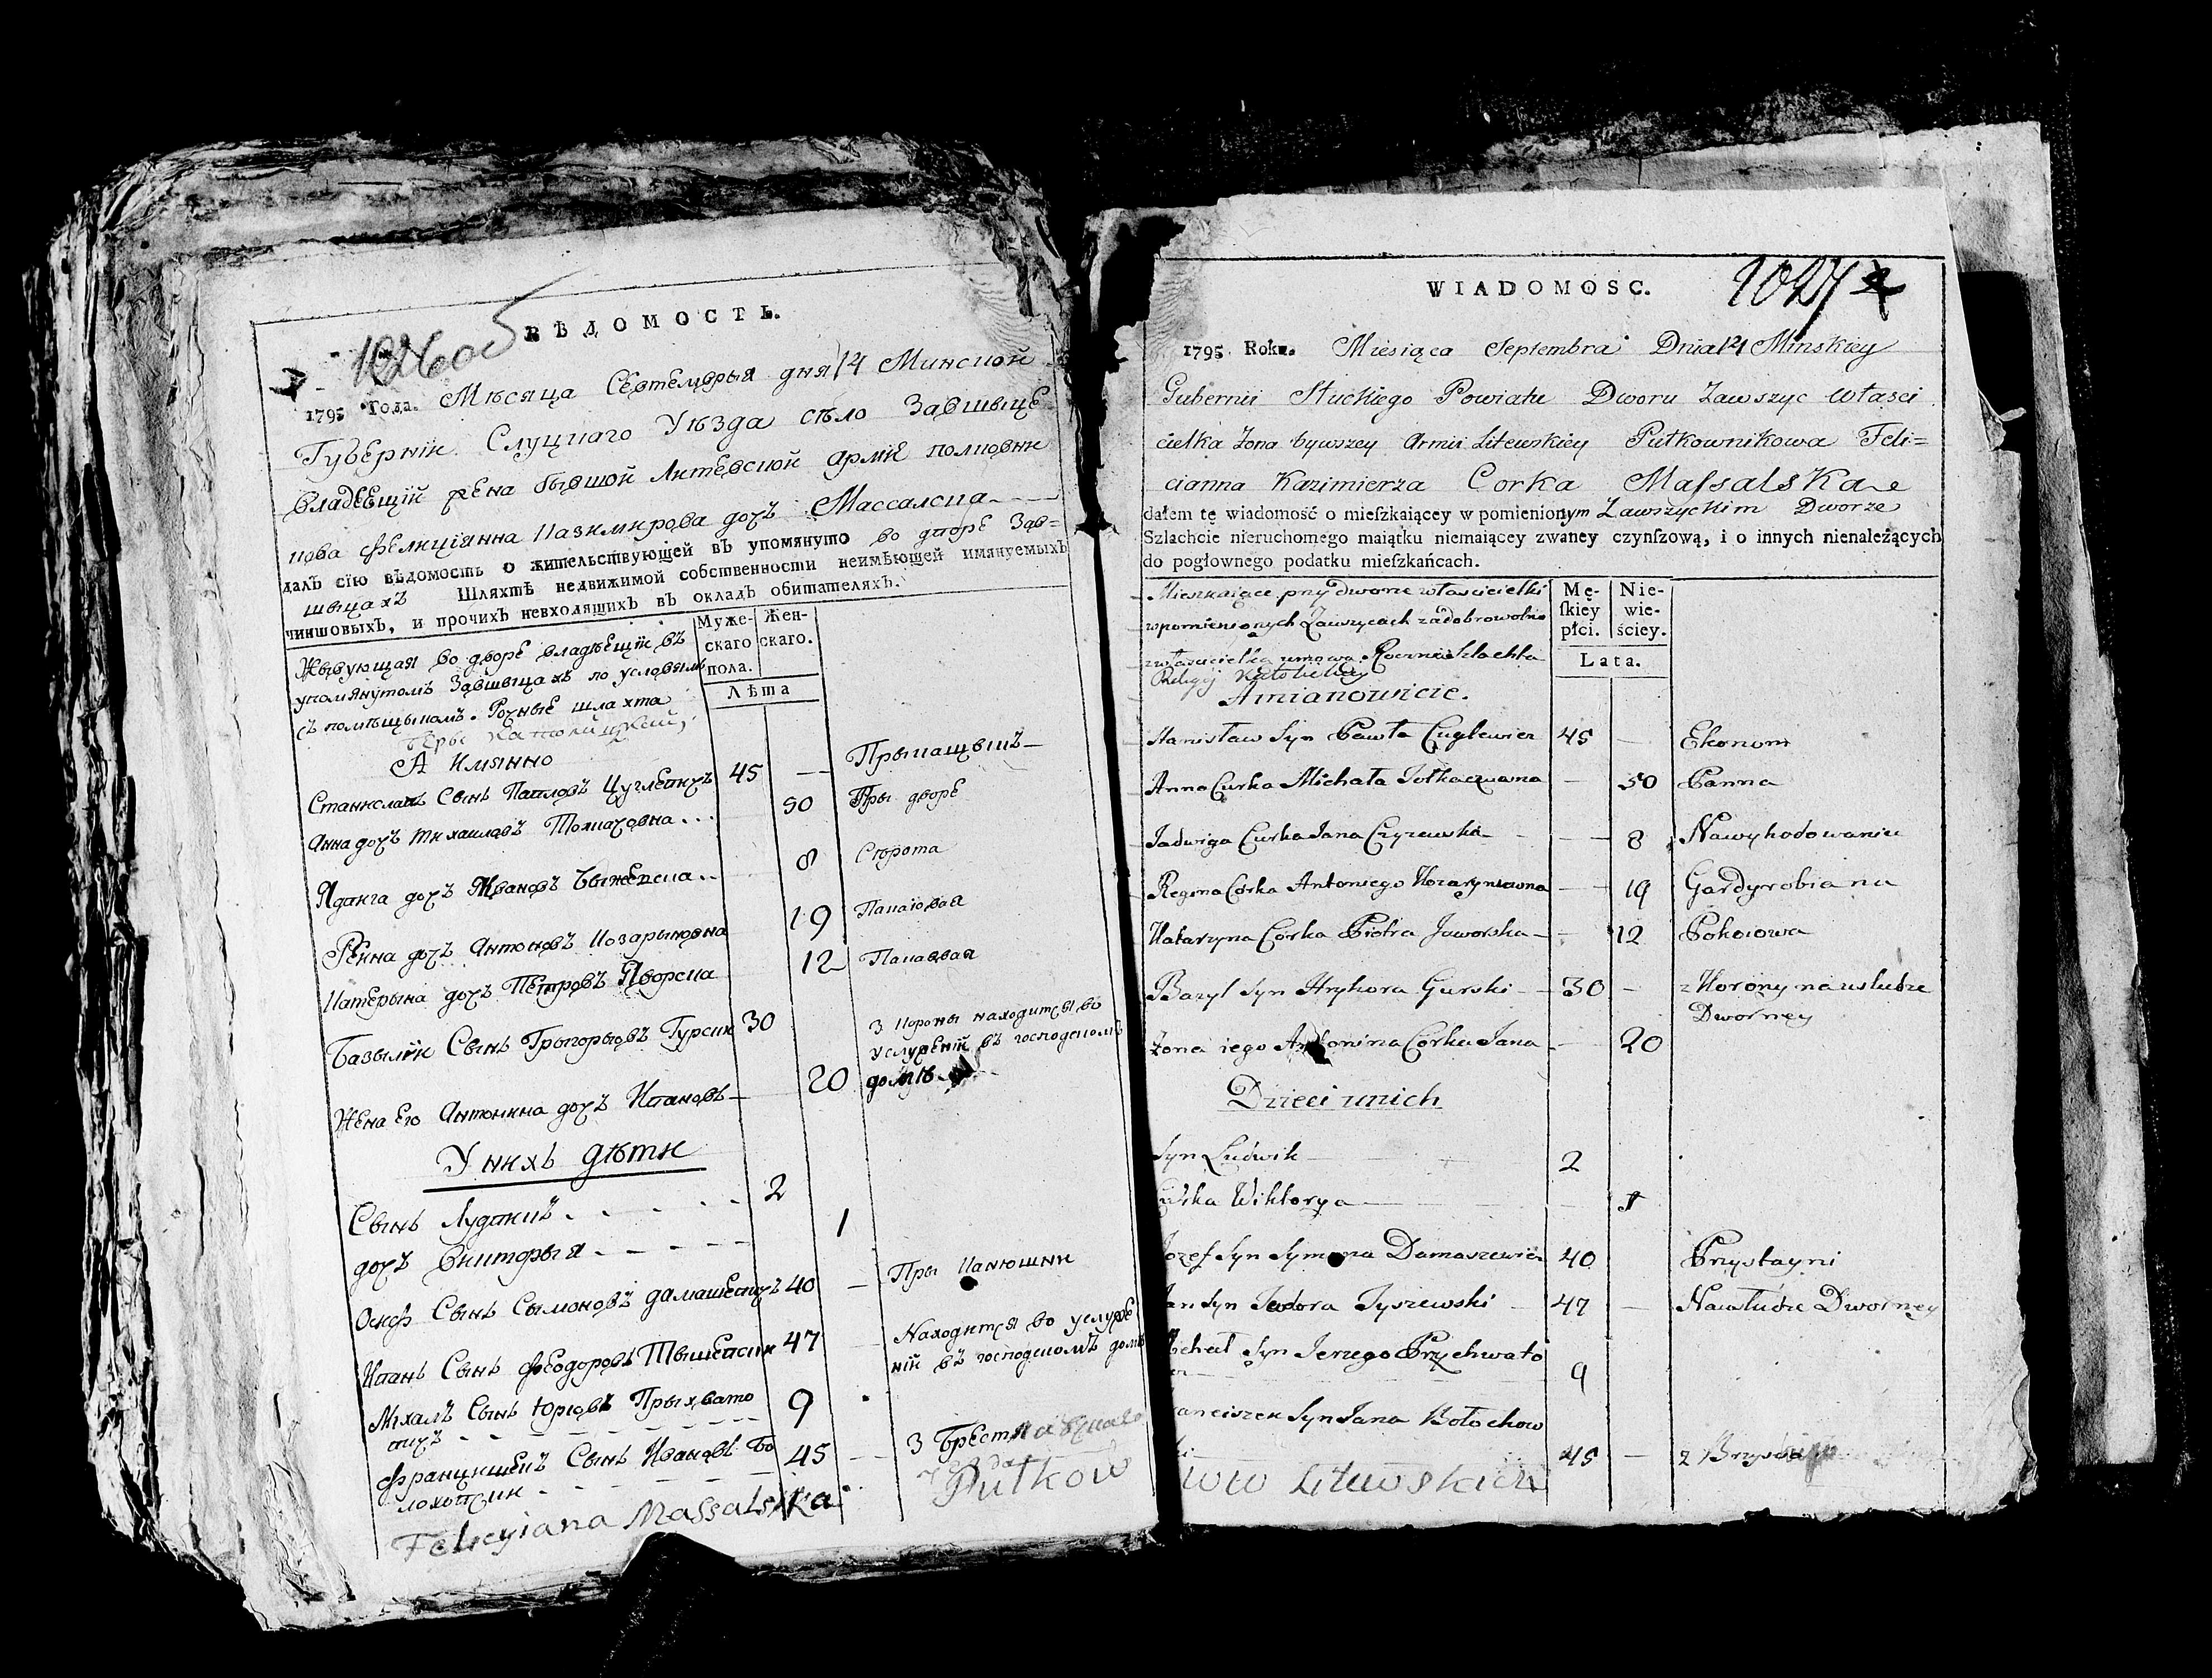 ВѢДОМОСТЬ.
1026 об
1795 Года. Мѣсяца Севтемврыя дня 14 Минской
Губерніи Слуцкаго Уѣзда сѣло Завшыце
владеещій жена бывшой Литевской арміе полковни
кова Фелиціянна Казимирова дочъ Массалска
далъ сїю вѣдомость о жительствующей въ упомянуто во дворе Зав=
шыцахъ Шляхтѣ недвижимой собственности неимѣющей имянуемыхъ
чиншовыхъ, и прочихъ невходящихъ въ окладъ обитателяхъ.
Мужескаго пола. | Женскаго.
Лѣта
Жывующая во дворе владѣещій въ
упомянутомъ Завшыцахъ по условямъ
съ помѣщыкомъ. Рочные шляхта
веры католицкей,
А имянно
Станиславъ Сынъ Павловъ Цуглевичъ 45 — Прыкащыкъ —
Анна дочъ Михаиловъ Толкачовна . . . 50 Пры дворе
Ядвига дочъ Ивановъ Чыжевска . . 8 Сырота
Рекина дочъ Антоновъ Козарыновна 19 Пакаювая
Катерына дочъ Петровъ Яворска 12 Пакаевая
Базылій Сынъ Грыгорьювъ Гурски 30 З Короны находится во
услужений въ господскомъ
домѣ
Жена Его Антонина дочъ Ивановъ — 20
У нихъ дѣти
Сынъ Лудвикъ . . . . 2
дочъ Викторыя . . . . 1
Осиф Сынъ Сымоновъ Дамашевичъ 40 — Пры Канюшни
Иванъ Сынъ Феодоровъ Тышевски 47 Находится во услуже
ній въ господскомъ доме
Михалъ Сынъ Юрьовъ Прыхвато 9
вичъ
Францишекъ Сынъ Ивановъ Бо 45 — З Брестя
лохотски
Felicyiana Massalska Pułkow
WIADOMOSC.
1027
1795 Roku. Miesiąca Septembra Dnia 14 Minskiey
Gubernii Słuckiego Powiatu Dworu Zawszyc własci
cielka Zona bywszey Armii Litewskiey Pułkownikowa Feli=
cianna Kazimierza Corka Massalska
dałem tę wiadomość o mieſzkaiącey w pomienionym Zawszyckim Dworze
Szlachcie nieruchomego maiątku niemaiącey zwaney czynſzową, i o innych nienależących
do pogłownego podatku mieſzkańcach.
Męſkiey płci. | Niewieściey.
Lata.
Mieszkaiące przy dworze własiicielki
wpomienionych Zawszycach zadobrowolno
zwłascicielką umową Roczni Szlachta
Religij Katolickiey
Amianowicie.
Stanisław Syn Pawła Cuglewicz 45 — Ekonom
Anna Curka Michała Tołkaczowna — 50 Panna
Jadwiga Curka Jana Czyzewska — — 8 Nawyhodowaniu
Regina Corka Antoniego Kozarynowna — 19 Gardyrobianu
Katarzyna Corka Piotra Jaworska — — 12 Pokoiowa
Bazyl Syn Hryhora Gurski — 30 — z Korony na usłudze
Dworney
Zona iego Antonina Corka Jana — 20
Dzieci unich
Syn Ludwik 2
Curka Wiktorya 1
Jozef Syn Symona Damaszewicz 40 Przystayni
Jan Syn Teodora Tyszewski 47 — Nausłudze Dworney
Michał Syn Jerzego Przychwato
9
Franciszek Syn Jana Bołochow
ski 45 — z Brzyscia
ww Litewskich